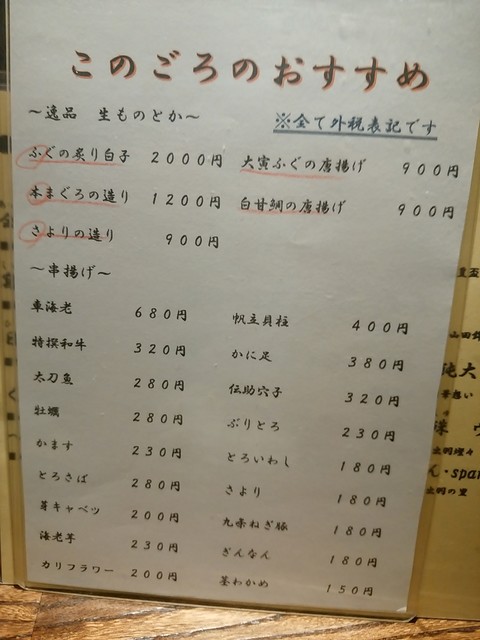 このごろのおすすめ
～逸品 生ものとか～
※全て外税表記です
ふぐの炙り白子 2000円
本まぐろの造り 1200円
さよりの造り 900円
大寅ふぐの唐揚げ 900円
白甘鯛の唐揚げ 900円
～串揚げ～
車海老 680円
特撰和牛 320円
太刀魚 280円
牡蠣 280円
かます 230円
とろさば 280円
芽キャベツ 200円
海老芋 230円
カリフラワー 200円
帆立貝柱 400円
かに足 380円
伝助穴子 320円
ぶりとろ 230円
とろいわし 180円
さより 180円
九条ねぎ豚 180円
ぎんなん 180円
茎わかめ 150円